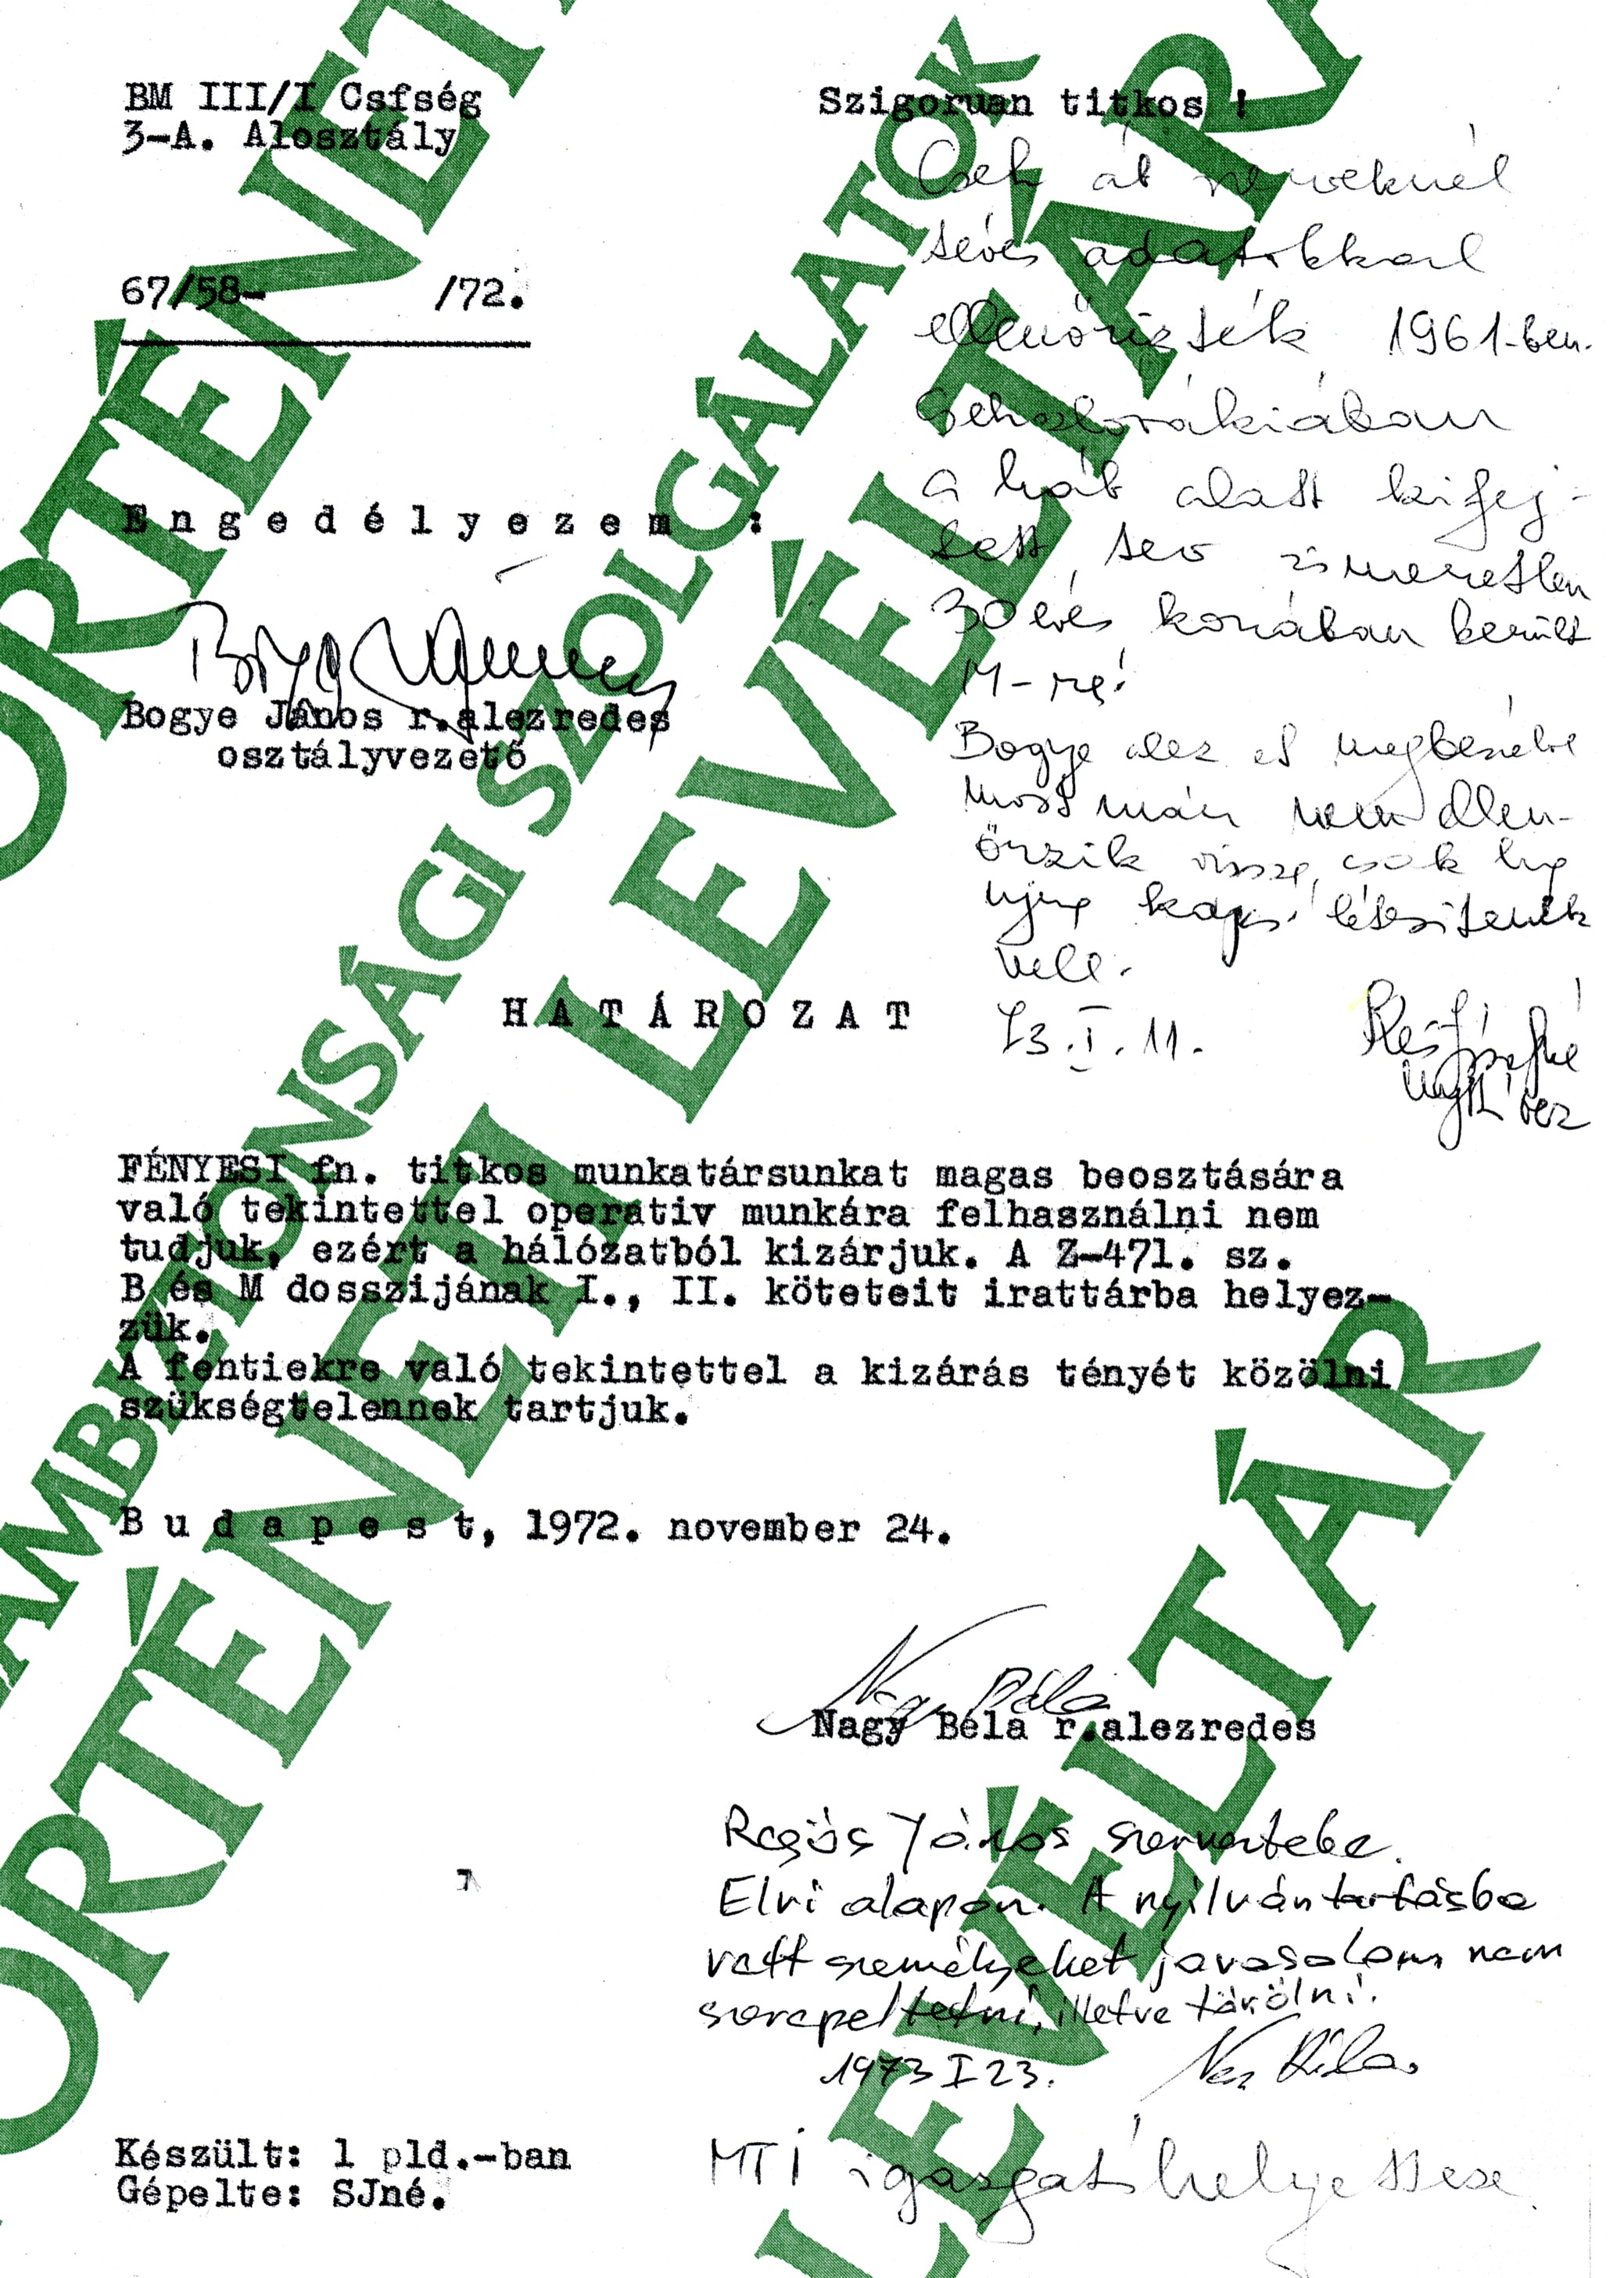 BM III/I Csfség
3-A. Alosztály
67/58- /72.
Szigoruan titkos !
adatokkal
ellenőrizték 1961-ben.
Csehszlovákiában
a háb alatt kifej-
tett tev ismeretlen
30 éves korában került
M-re!
Bogye alez et megbeszélve
most már nem ellen-
őrzik vissza, csak ha
ujra kapcs. létesitenek
vele.
73.I.11.
Engedélyezem :
Bogye János r.alezredes
osztályvezető
HATÁROZAT
FÉNYESI fn. titkos munkatársunkat magas beosztására
való tekintettel operativ munkára felhasználni nem
tudjuk, ezért a hálózatból kizárjuk. A Z-471. sz.
B és M dosszijának I., II. köteteit irattárba helyez-
zük.
A fentiekre való tekintettel a kizárás tényét közölni
szükségtelennek tartjuk.
Budapest, 1972. november 24.
Nagy Béla
Nagy Béla r.alezredes
János
Elvi alapon. A nyilvántartásba
vett személyeket javasolom nem
szerepeltetni, illetve törölni.
1973 I 23.
MTI igazgatóhelyettese
Készült: 1 pld.-ban
Gépelte: SJné.
ÁLLAMBIZTONSÁGI SZOLGÁLATOK
TÖRTÉNETI LEVÉLTÁRA